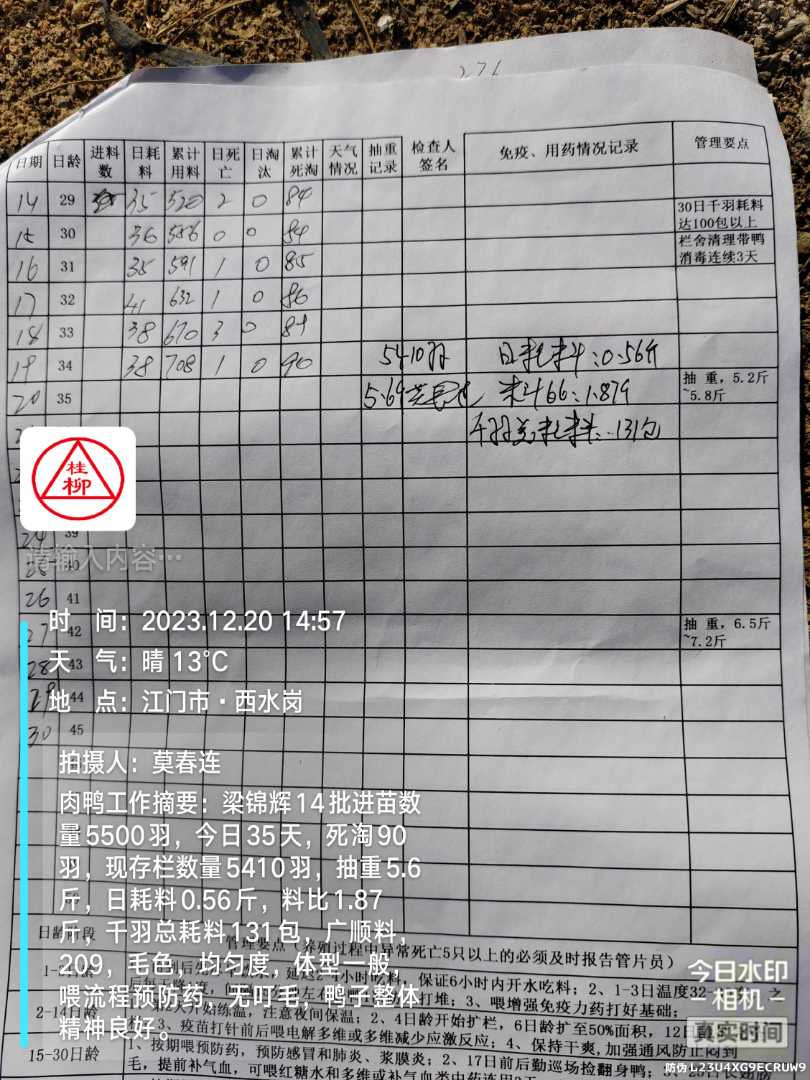 276
日期 日龄 进料数 日耗料 累计用料 日死亡 日淘汰 累计死淘 天气情况 抽重记录 检查人签名 免疫、用药情况记录 管理要点
14 29 35 520 2 0 84
15 30 36 556 0 0 84 30日千羽耗料达100包以上
16 31 35 591 1 0 85 栏舍清理带鸭消毒连续3天
17 32 41 632 1 0 86
18 33 38 670 3 0 89
19 34 38 708 1 0 90 5410羽 日耗料:0.56斤
20 35 料比:1.87 抽重,5.2斤~5.8斤
千羽总耗料:131包
桂柳
24 39
请输入内容…
40
26 41
27 42 抽重,6.5斤~7.2斤
28 43
29 44
30 45
时 间:2023.12.20 14:57
天 气:晴 13℃
地 点:江门市·西水岗
拍摄人:莫春连
肉鸭工作摘要:梁锦辉14批进苗数
量5500羽,今日35天,死淘90
羽,现存栏数量5410羽,抽重5.6
斤,日耗料0.56斤,料比1.87
斤,千羽总耗料131包,广顺料,
209,毛色,均匀度,体型一般,
喂流程预防药,无叮毛,鸭子整体
精神良好。
日龄阶段 管理要点(养殖过程中异常死亡5只以上的必须及时报告管片员)
保证6小时内开水吃料;2、1-3日温度32
打堆;3、喂增强免疫力药打好基础;
2-14日龄 开始练温,注意夜间保温;2、4日龄开始扩栏,6日龄扩至50%面积,12日
疫苗打针前后喂电解多维或多维减少应激反应;4、保持干爽,加强通风防止闷到
15-30日龄 1、按期喂预防药,预防感冒和肺炎、浆膜炎;2、17日前后勤巡场捡翻身鸭;
毛,提前补气血,可喂红糖水和多维或补气血类中药连用3天
今日水印
相机
真实时间
防伪 L23U4XG9ECRUW9